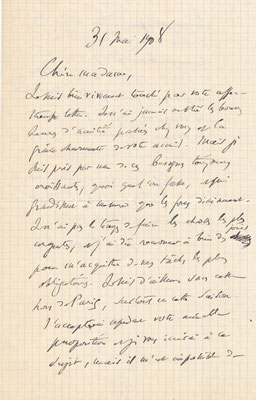 31 mai 1908
Chère madame,
Je suis bien vivement touché par votre affec-
tueuse lettre. Je n'ai jamais oublié les bonnes
heures d'amitié passées chez vous et la
grâce charmante de votre accueil. Mais je
suis pris par une de ces besognes toujours
croissantes, quoi qu'on fasse, et qui
grandissent à mesure que les forces diminuent.
Je n'ai pas le temps de faire les choses les plus
urgentes, et j'ai dû renoncer à bien des
pour m'acquitter de mes tâches les plus
obligatoires. Je suis d'ailleurs sans cesse
hors de Paris, surtout en cette saison.
J'accepterais cependant votre aimable
proposition si je vous à ce
sujet, mais il m'est impossible de